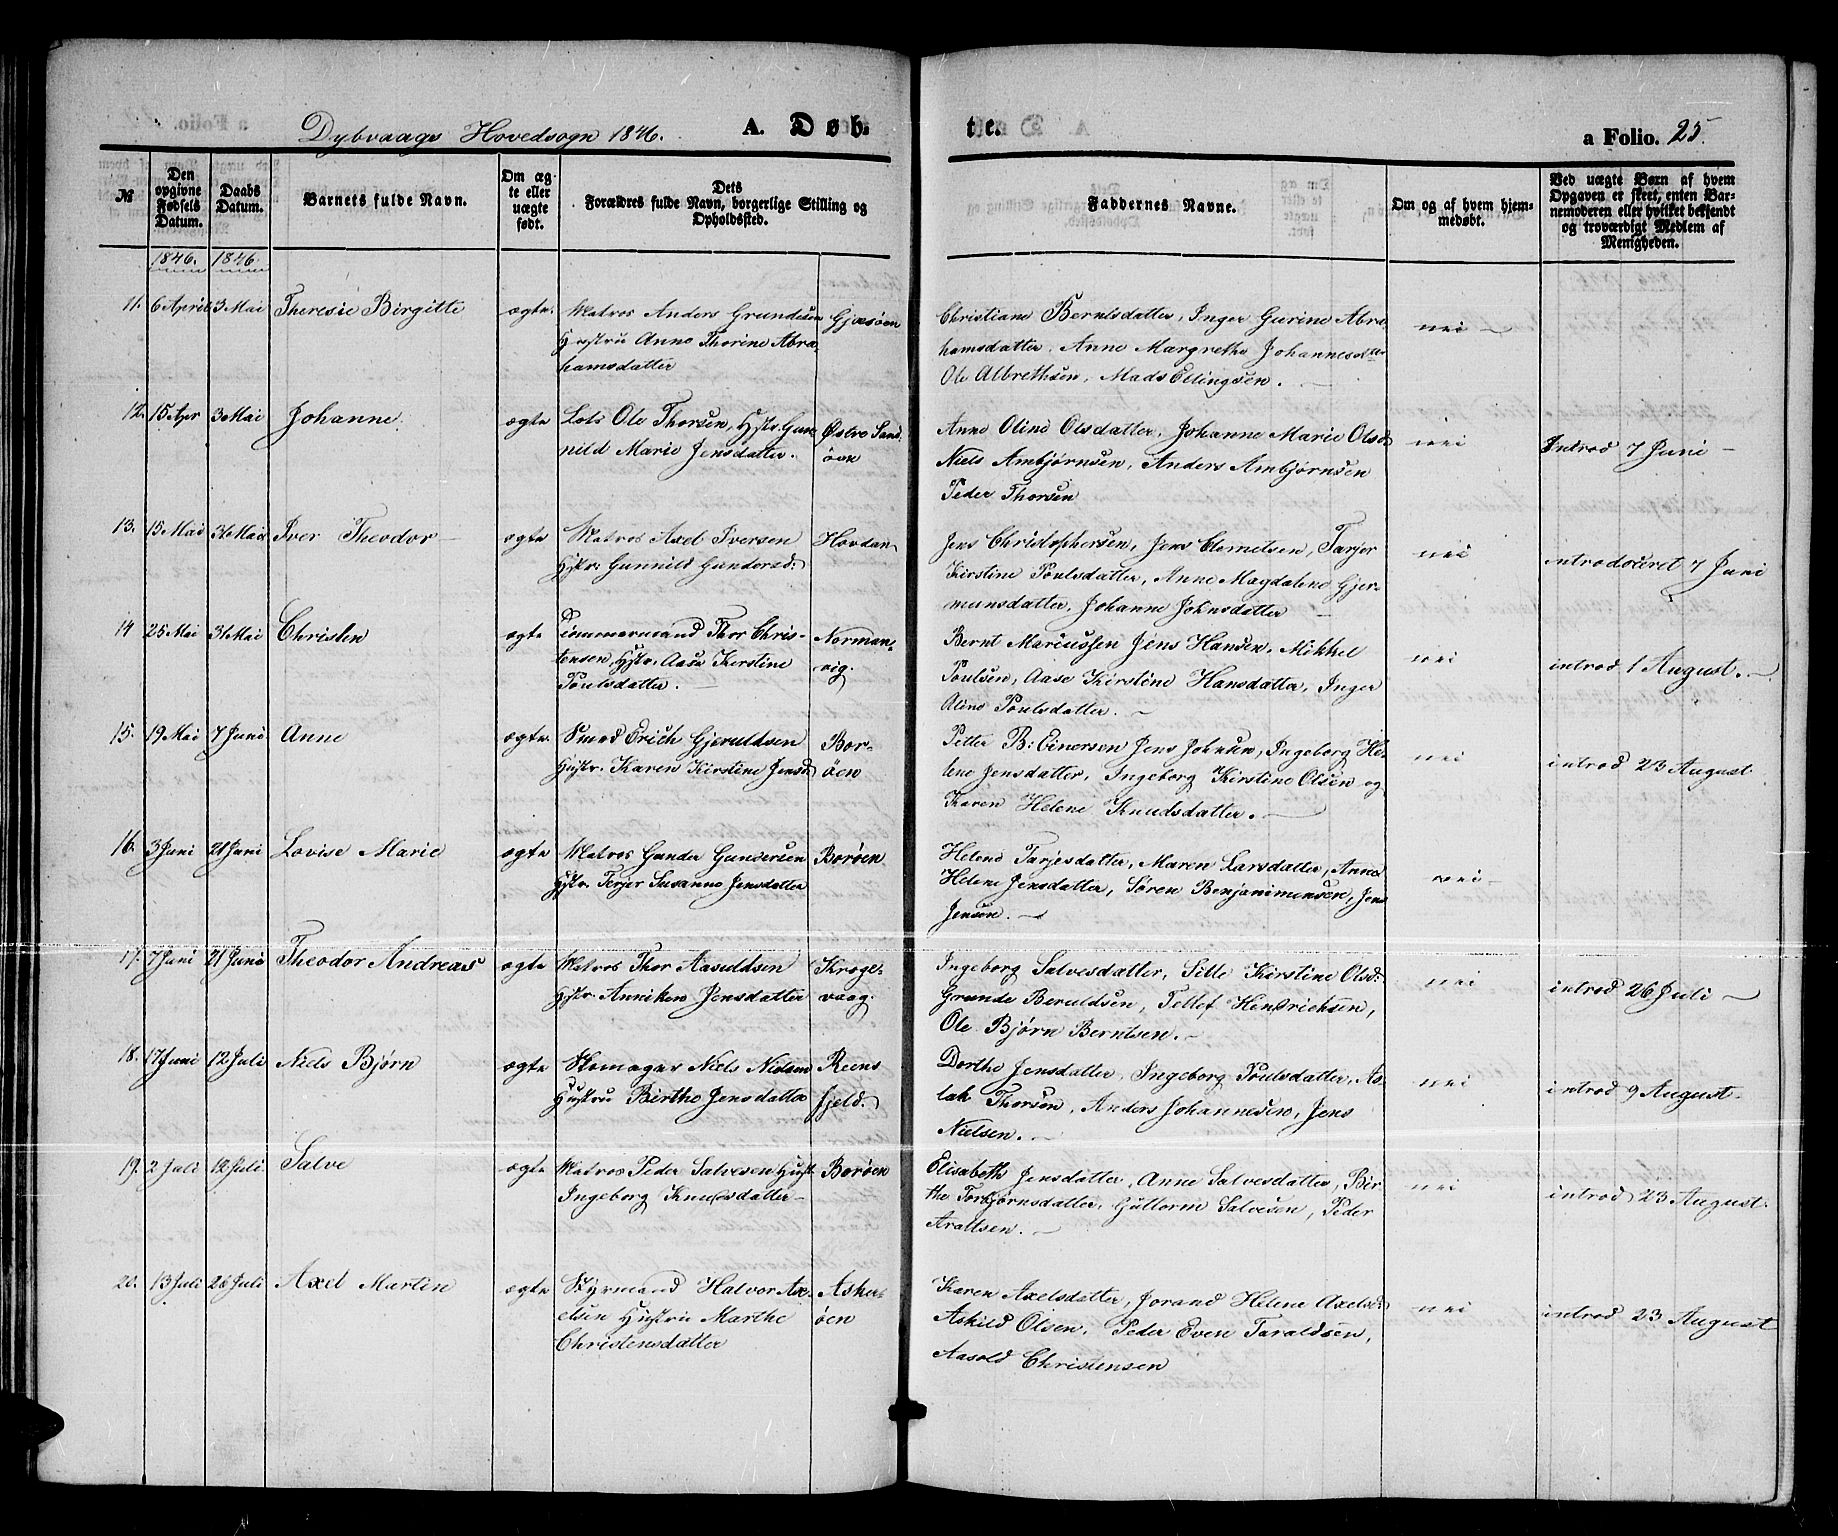 Dybvaags Hovedsogn 1846. A. Døb- te. a Folio. 25.
№
Den opgivne Fødsels Datum.
Daabs Datum.
Barnets fulde Navn.
Om ægte eller uægte født.
Dets Forældres fulde Navn, borgerlige Stilling og Opholdssted.
Faddernes Navne.
Om og af hvem hjemmedøbt.
Ved uægte Børn af hvem Opgaven er skeet, enten Barnemoderen eller hvilket bekjendt og troværdigt Medlem af Menigheden.
1846. 1846.
11. 6 April 3 Mai Theresie Birgitte ægte. Matros Anders Grundesen Gjæsøen Christiane Berntsdatter, Inger Gurine Abra- nei
Hustru Anne Thorine Abra- hamsdatter. Anne Margrethe Johannesda-
hamsdatter Ole Albrethsen, Mads Ellingsen.
12. 15 Apr 3 Mai Johanne. ægte Lots Ole Thorsen, Hstr. Gun- Østre Sand- Anne Oline Olsdatter, Johanne Marie Olsd. nei Introd 7 Juni
nild Marie Jensdatter. øen Niels Ambjørnsen, Anders Ambjørnsen
Peder Thorsen
13. 15 Mai 31 Mai Iver Theodor ægte Matros Axel Iversen Hovdan Jens Christophersen, Jens Clemetsen, Tarjer nei introduceret 7 Juni
Hstr. Gunnild Gundersd: Kirstine Poulsdatter, Anne Magdalene Gjer-
munsdatter, Johanne Johnsdatter
14 25 Mai 31 Mai Christen ægte Tømmermand Thor Chris- Norman- Bernt Mariussen Jens Hansen, Mikkel nei introd 1 August.
tensen, Hstr. Aase Kirstine vig. Poulsen, Aase Kirstine Hansdatter, Inger
Poulsdatter. Aline Poulsdatter.
15. 19 Mai 7 Juni Anne ægte Smed Erich Gjeruldsen Bor- Petter B: Einersen Jens Johnsen, Ingeborg He- nei introd 23 August
Hustr. Karen Kirstine Jensd øen lene Jensdatter, Ingeborg Kirstine Olsen og
Karen Helene Knudsdatter.
16. 3 Juni 21 Juni Lovise Marie ægte Matros Gunder Gundersen Borøen Helene Tarjesdatter, Maren Larsdatter, Anne nei
Hstr. Terjer Susanne Jensdatter Helene Jensdatter, Søren Benjamimensen, Jens
Jensen.
17. 7 Juni 21 Juni Theodor Andreas ægte Matros Thor Aasuldsen Kroge- Ingeborg Salvesdatter, Sille Kirstine Olsd: nei introd 26 Juli
Hstr. Anniken Jensdatter vaag. Grunde Beruldsen, Tellef Hendrichsen,
Ole Bjørn Berntsen.
18. 17 Juni 12 Juli Niels Bjørn ægte Skomager Niels Nielsen Reens Dorthe Jensdatter, Ingeborg Poulsdatter, As- nei introd 9 August
Hustru Birthe Jensdatter fjeld. lak Thorsen, Anders Johannesen, Jens
Nielsen.
19. 2 Juli 12 Juli. Salve ægte Matros Peder Salvesen Hust. Borøen Elisabeth Jensdatter, Anne Salvesdatter, Bir- nei introd 23 August.
Ingeborg Knudsdatter the Torbjørnsdatter, Guttorm Salvesen, Peder
Araltsen.
20. 13 Juli 26 Juli Axel Martin ægte Styrmand Halvor Ax- Asker- Karen Axelsdatter, Jorand Helene Axelsd: nei introd 23 August
elsen Hustru Marthe øen Askild Olsen, Peder Even Taraldsen,
Christensdatter Aasold Christensen